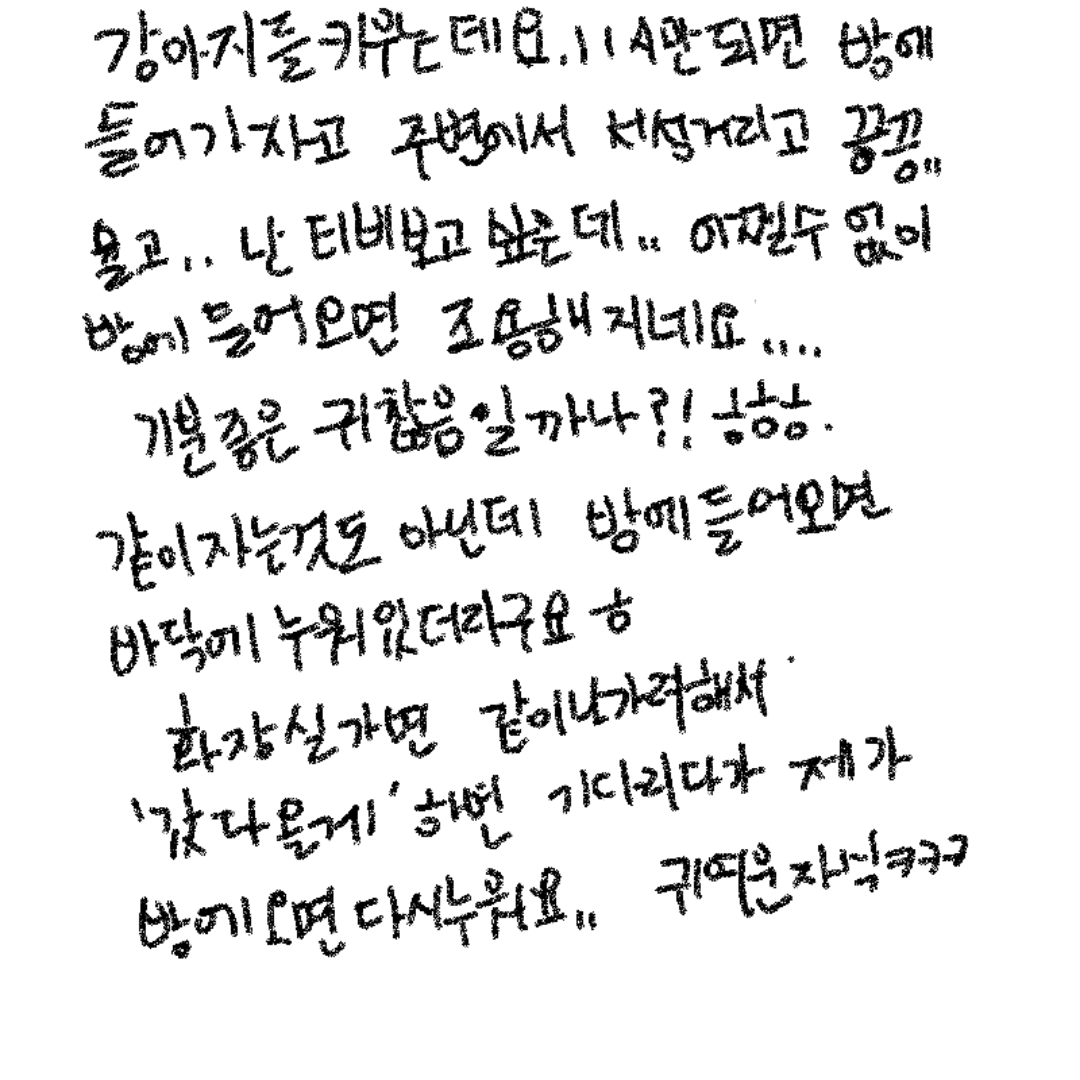 강아지를키우는데요.11시만되면 방에
들어가자고 주변에서 서성거리고 끙끙..
울고.. 난 티비보고 싶은데.. 어쩔수 없이
방에 들어오면 조용해지네요....
기분좋은 귀찮음일까나?! ㅎㅎㅎ.
같이자는것도 아닌데 방에들어오면
바닥에 누워있더라구요 ㅎ
화장실가면 같이나가려해서
'갔다올게' 하면 기다리다가 제가
방에오면다시누워요.. 귀여운자식ㅋㅋㅋ